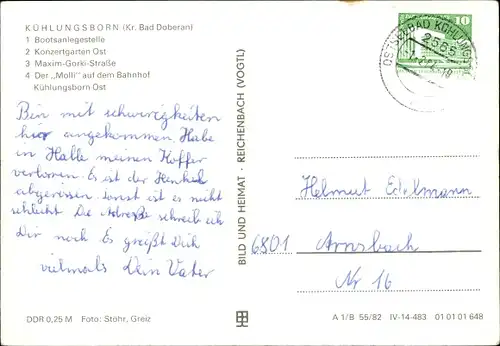 KÜHLUNGSBORN (Kr. Bad Doberan)
1 Bootsanlegestelle
2 Konzertgarten Ost
3 Maxim-Gorki-Straße
4 Der „Molli" auf dem Bahnhof
Kühlungsborn Ost
Bin mit schwirigkeiten
hir angekommen. Habe
in Halle meinen Koffer
verlorren. Es ist der Henkel
abgerissen. sonst ist es nicht
schlecht. Die Adreße schreib ich
Dir noch. Es grüßt Dich
vielmals Dein Vater
DDR 0,25 M Foto: Stöhr, Greiz
BILD UND HEIMAT · REICHENBACH (VOGTL)
10
OSTSEEBAD KÜHLUNGSBORN
2565
Helmut Edelmann
6801 Arnsbach
Nr 16
A 1/B 55/82 IV-14-483 01 01 01 648